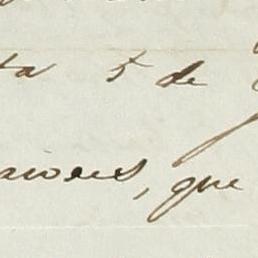 ta 5 de
aiores, que